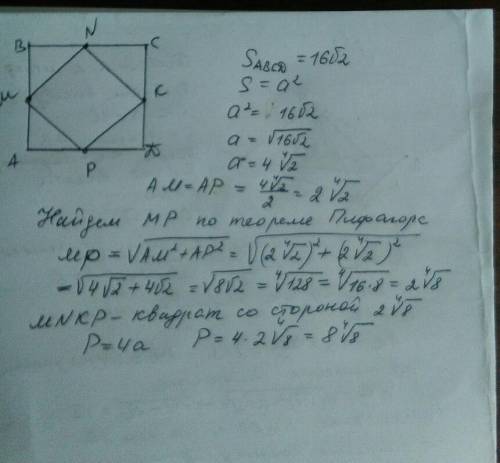 B N C
M K
A P D
S_ABCD = 16√2
S = a²
a² = 16√2
a = √(16√2)
a = 4 ∜2
AM = AP = (4∜2)/2 = 2 ∜2
Найдем MP по теореме Пифагора
MP = √(AM² + AP²) = √((2∜2)² + (2∜2)²)
= √(4√2 + 4√2) = √(8√2) = ∜128 = ∜(16·8) = 2∜8
MNKP – квадрат со стороной 2∜8
P = 4a P = 4 · 2∜8 = 8∜8